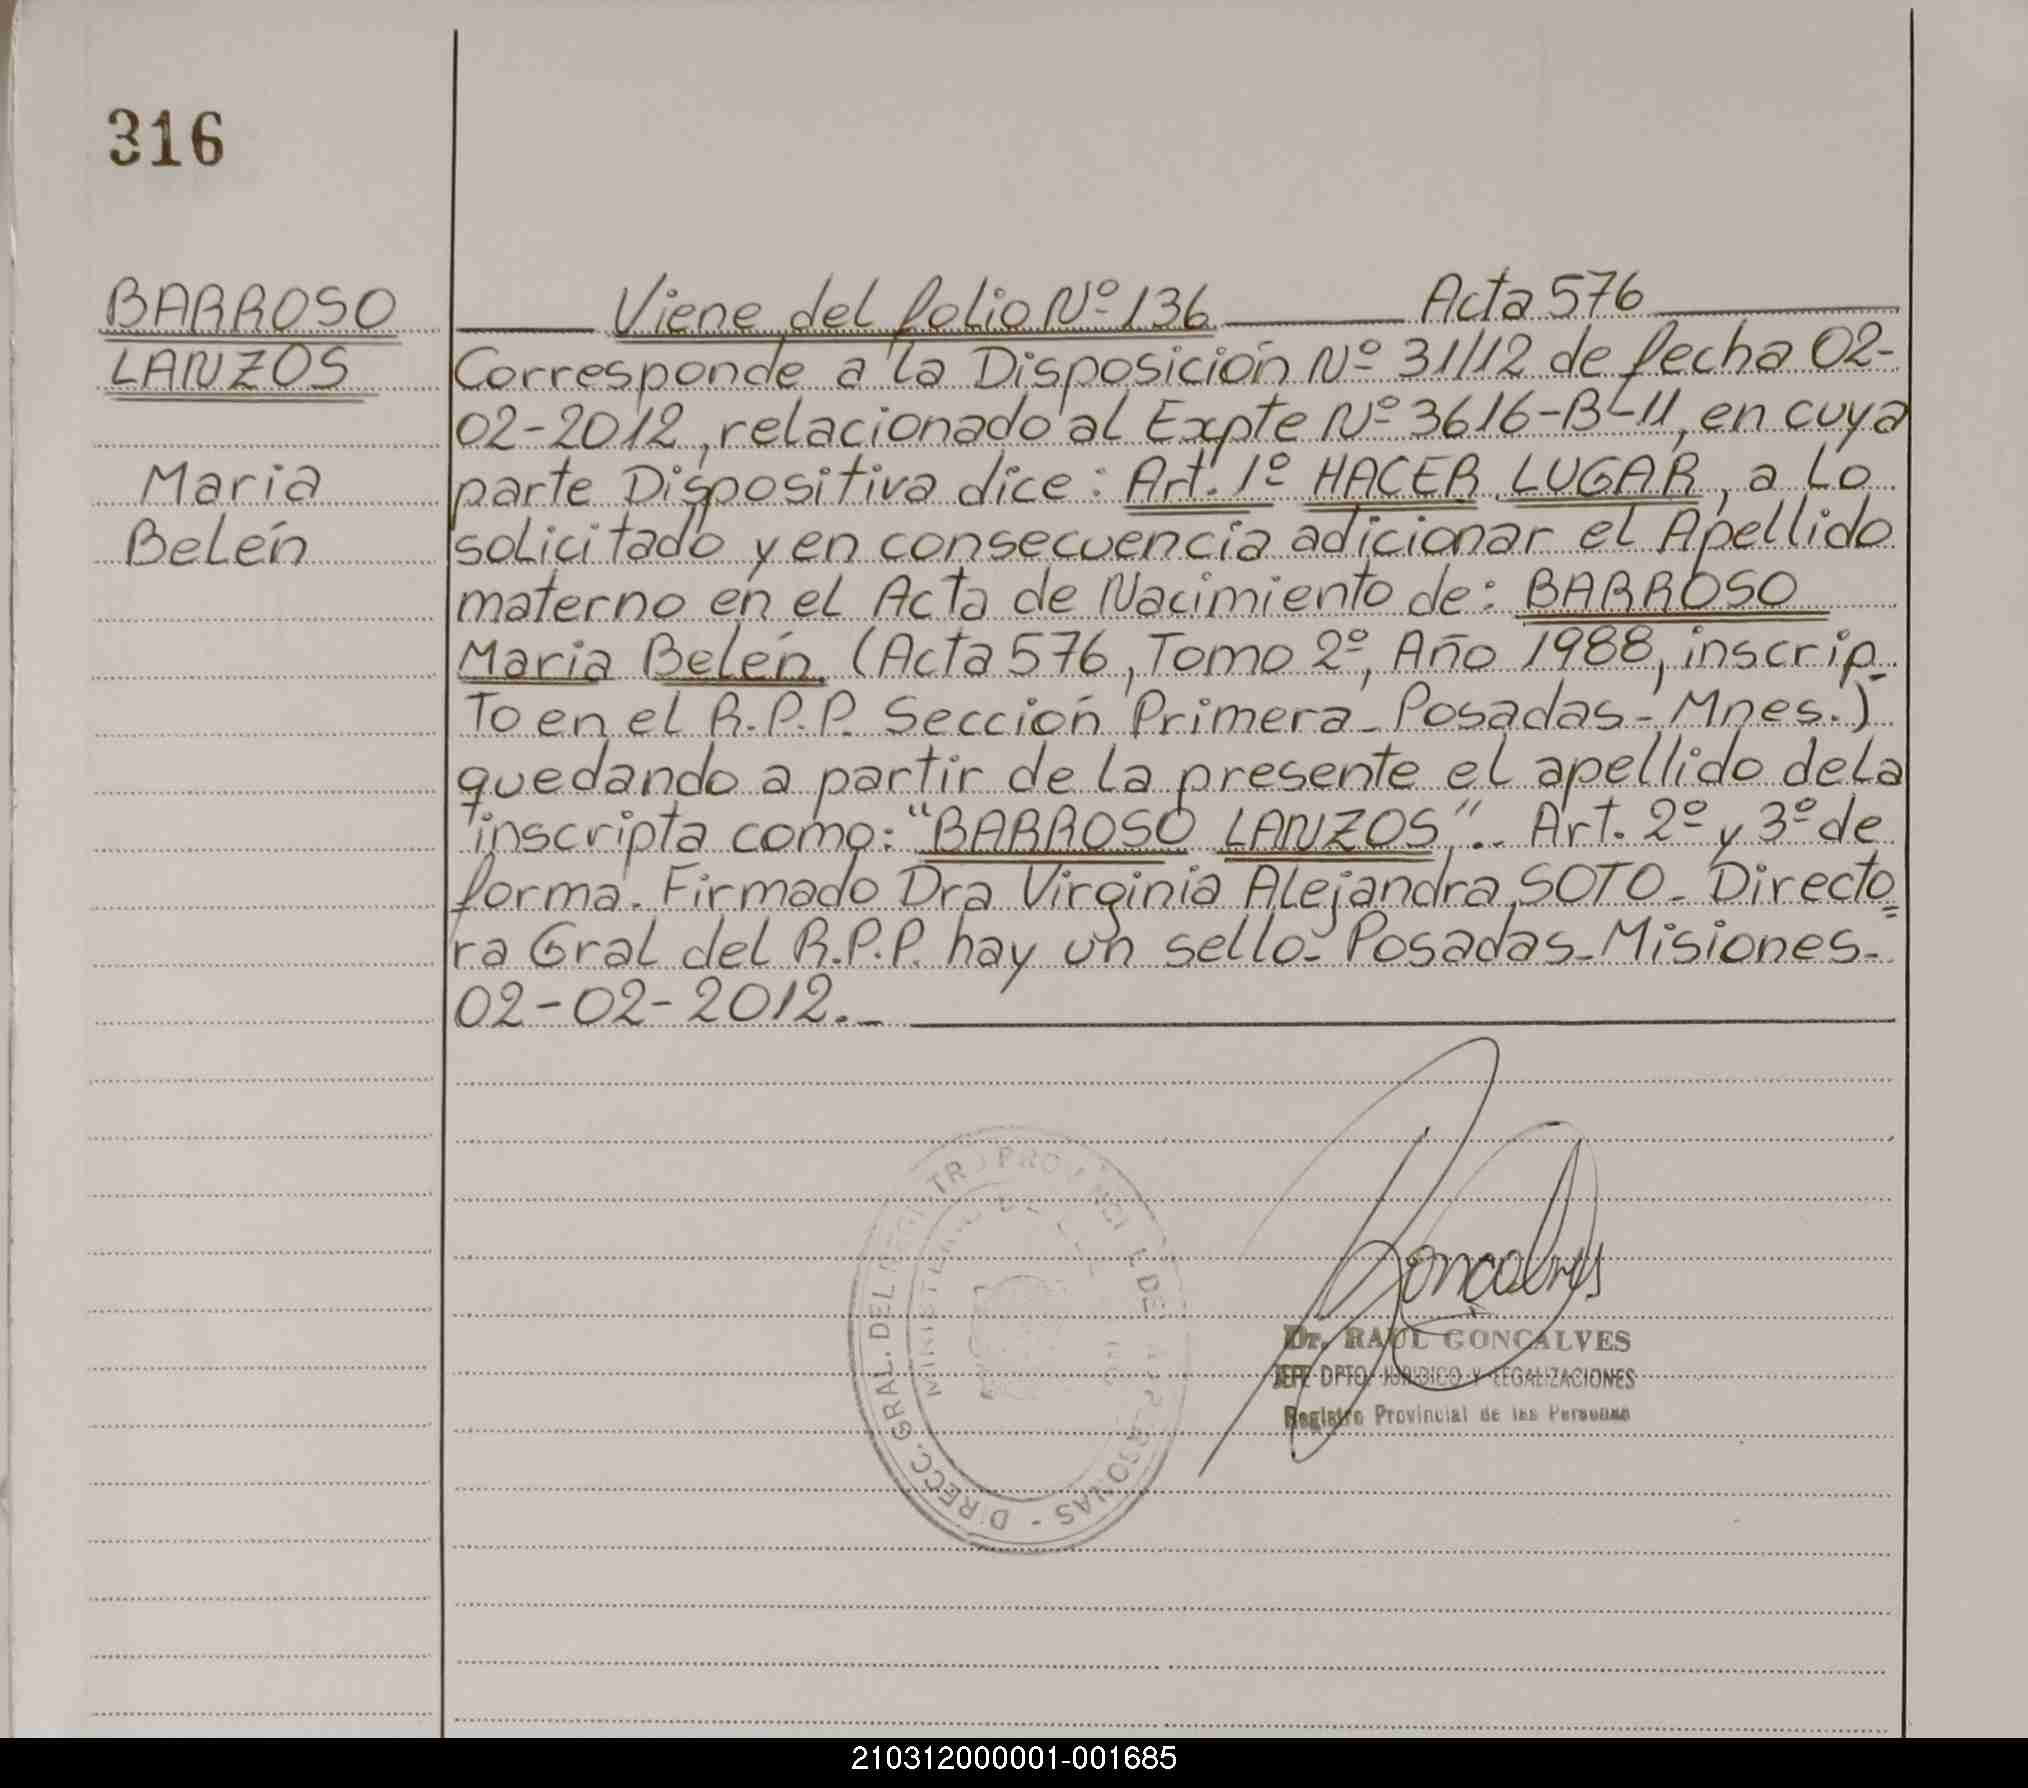 316
BARROSO
LANZOS
Maria
Belén
Viene del folio Nº 136 Acta 576
Corresponde a la Disposición Nº 31/12 de fecha 02-
02-2012, relacionado al Expte Nº 3616-B-11, en cuya
parte Dispositiva dice: Art. 1º HACER LUGAR, a lo
solicitado y en consecuencia adicionar el Apellido
materno en el Acta de Nacimiento de: BARROSO
Maria Belén. (Acta 576, Tomo 2º, Año 1988, inscrip-
to en el R.P.P. Sección Primera - Posadas - Mnes.)
quedando a partir de la presente el apellido de la
inscripta como: "BARROSO LANZOS".- Art. 2º y 3º de
forma. Firmado Dra Virginia Alejandra SOTO - Directo=
ra Gral del R.P.P. hay un sello - Posadas - Misiones -
02-02-2012.-
Gonçalves
Dr. RAUL GONÇALVES
JEFE DPTO. JURIDICO Y LEGALIZACIONES
Registro Provincial de las Personas
DIRECC. GRAL. DEL REGISTRO PROVINCIAL DE LAS PERSONAS -
MINISTERIO DE
210312000001-001685